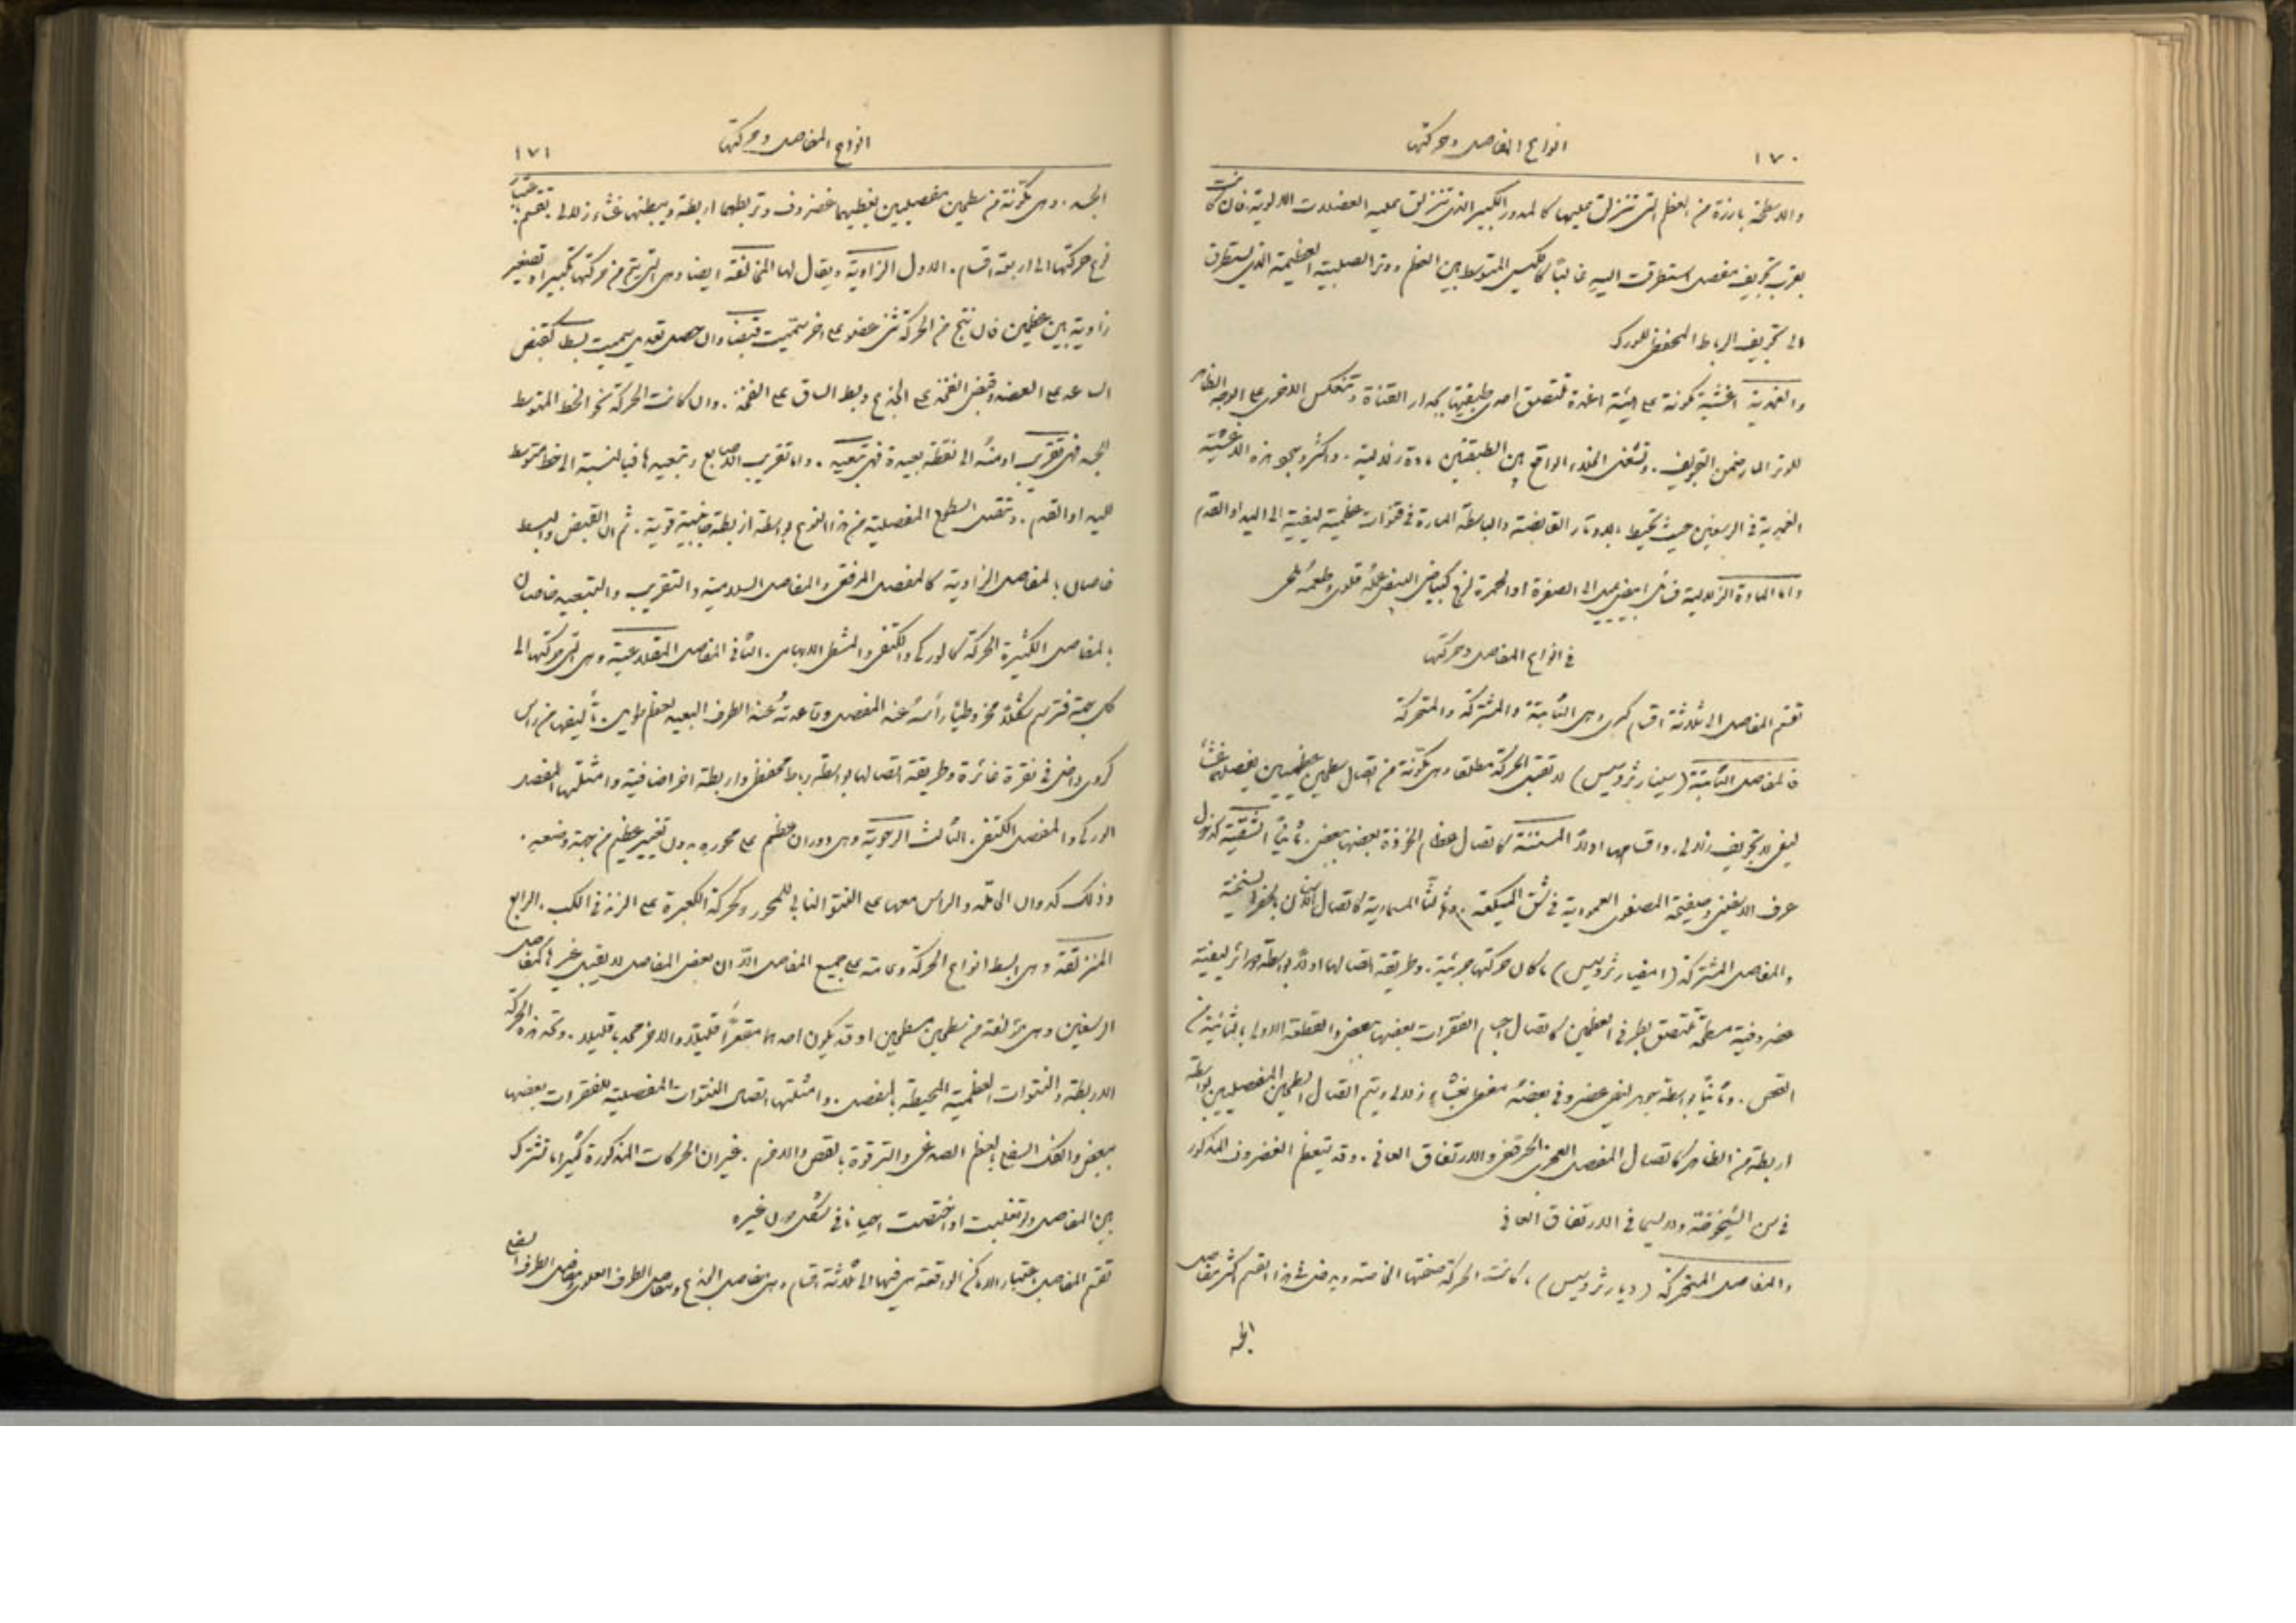 ١٧٠
انواع المفاصل وحركتها
والاسطحة بارزة من العظم التي تنزلق عليها كالمدور الكبير الذي تنزلق عليه العضلات الالوية. فان كانت
بقرب تجويف مفصل استطرقت اليه غالبًا كالكيس المتوسط بين العظم ووتر الصلبية العظيمة الذي يستطرق
الى تجويف الرباط المحفظي للورك
والغمدية اغشية مكونة على هيئة اغمدة تلتصق احدى طبقتيها بجدار القناة وتنعكس الاخرى على الوجه الظاهر
للوتر المار ضمن التجويف. وتشغل الخلاء الواقع بين الطبقتين مادة زلالية. واكثر وجود هذه الاغشية
الغمدية في الرسغين حيث تحيط بالاوتار القابضة والباسطة المارة في قنوات عظمية ليفية الى اليد او القدم
واما المادة الزلالية فسائل ابيض يميل الى الصفرة او الحمرة لزج كبياض البيض فعله قلوي وطعمه ملحي
في انواع المفاصل وحركتها
تقسم المفاصل الى ثلاثة اقسام كبرى وهي الثابتة والمشتركة والمتحركة
فالمفاصل الثابتة (سينارثروسيس) لا تقبل الحركة مطلقا وهي مكونة من اتصال سطحين عظميين يفصلهما غشاء
ليفي بلا تجويف زلالي. واقسامها اولاً المسننة كاتصال عظام الجوذة بعضها ببعض. ثانيًا الشقية كدخول
عرف الاسفيني وصفيحة المصفوي العمودية في شق الميكعة. وثالثًا المسمارية كاتصال الاسنان بالحفر السنخية
والمفاصل المشتركة (امفيارثروسيس) ما كان حركتها جزئية. وطريقة اتصالها اولاً بواسطة دوائر ليفية
غضروفية مسطحة تلتصق بطرفي العظمين كاتصال اجسام الفقرات بعضها ببعض والقطعة الاولى بالثانية من
القص. وثانيًا بواسطة جوهر ليفي غضروفي بعضه مغطى بغشاء زلالي ويتم اتصال السطحين المفصليين بواسطة
اربطة من الظاهر كاتصال المفصل العجزي الحرقفي والارتفاق العاني. وقد يتعظم الغضروف المذكور
في سن الشيخوخة ولاسيما في الارتفاق العاني
والمفاصل المتحركة (ديارثروسيس) ما كانت الحركة صفتها الخاصة ويدخل في هذا القسم اكثر مفاصل
الجسد
انواع المفاصل وحركتها
١٧١
الجسد. وهي مكونة من سطحين مفصليين يغطيهما غضروف وتربطهما اربطة ويبطنها غشاء زلالي تقسم باعتبار
نوع حركتها الى اربعة اقسام. الاول الزاوية ويقال لها المخالفة ايضا وهي التي يتم من حركتها تكبير او تصغير
زاوية بين عظمين فان نتج من الحركة ثني عضو على اخر سميت قبضا وان حصل تعديل سميت بسطا كقبض
الساعد على العضد وقبض الفخذ على الجذع وبسط الساق على الفخذ. وان كانت الحركة نحو الخط المتوسط
للجسد فهي تقريب او منه الى نقطة بعيدة فهي تبعيد. واما تقريب الاصابع وتبعيدها فبالنسبة الى خط متوسط
لليد او القدم. وتتصل السطوح المفصلية من هذا النوع بواسطة اربطة جانبية قوية. ثم ان القبض والبسط
خاصان بالمفاصل الزاوية كالمفصل المرفقي والمفاصل السلامية والتقريب والتبعيد خاصان
بالمفاصل الكثيرة الحركة كالوركي والكتفي والمشطي الابهامي. الثاني المفاصل المقلاعية وهي التي حركتها الى
كل جهة فترسم شكلاً مخروطيًا رأسه عند المفصل وقاعدته عند الطرف البعيد لعظم طويل. تأليفها من راس
كروي داخل في نقرة غائرة وطريقة اتصالها بواسطة رباط محفظي واربطة اخر اضافية وامثلتها المفصل
الوركي والمفصل الكتفي. الثالث الرحوية وهي دوران عظم على محوره بدون تغيير عظيم من جهة وضعه.
وذلك كدوران الحاملة والراس معها على النتو النابي للمحور وكحركة الكعبرة على الزند في الكب. الرابع
المنزلقة وهي ابسط انواع الحركة وعامة على جميع المفاصل الا ان بعض المفاصل لا يقبل غيرها كمفاصل
الرسغين وهي مؤلفة من سطحين مسطحين او قد يكون احدهما مقعرًا قليلاً والاخر محدبا قليلا. وتحد هذه الحركة
الاربطة والنتوات العظمية المحيطة بالمفصل. وامثلتها اتصال النتوات المفصلية للفقرات بعضها
ببعض والفك السفلي بالعظم الصدغي والترقوة بالقص والاخرم. غير ان الحركات المذكورة كثيرا ما تشترك
بين المفاصل وان تغلبت او اختصت احيانا في شكل دون غيره
تقسم المفاصل باعتبار الاماكن الواقعة هي فيها الى ثلاثة اقسام وهي مفاصل الجذع ومفاصل الطرف العلوي ومفاصل الطرف السفلي